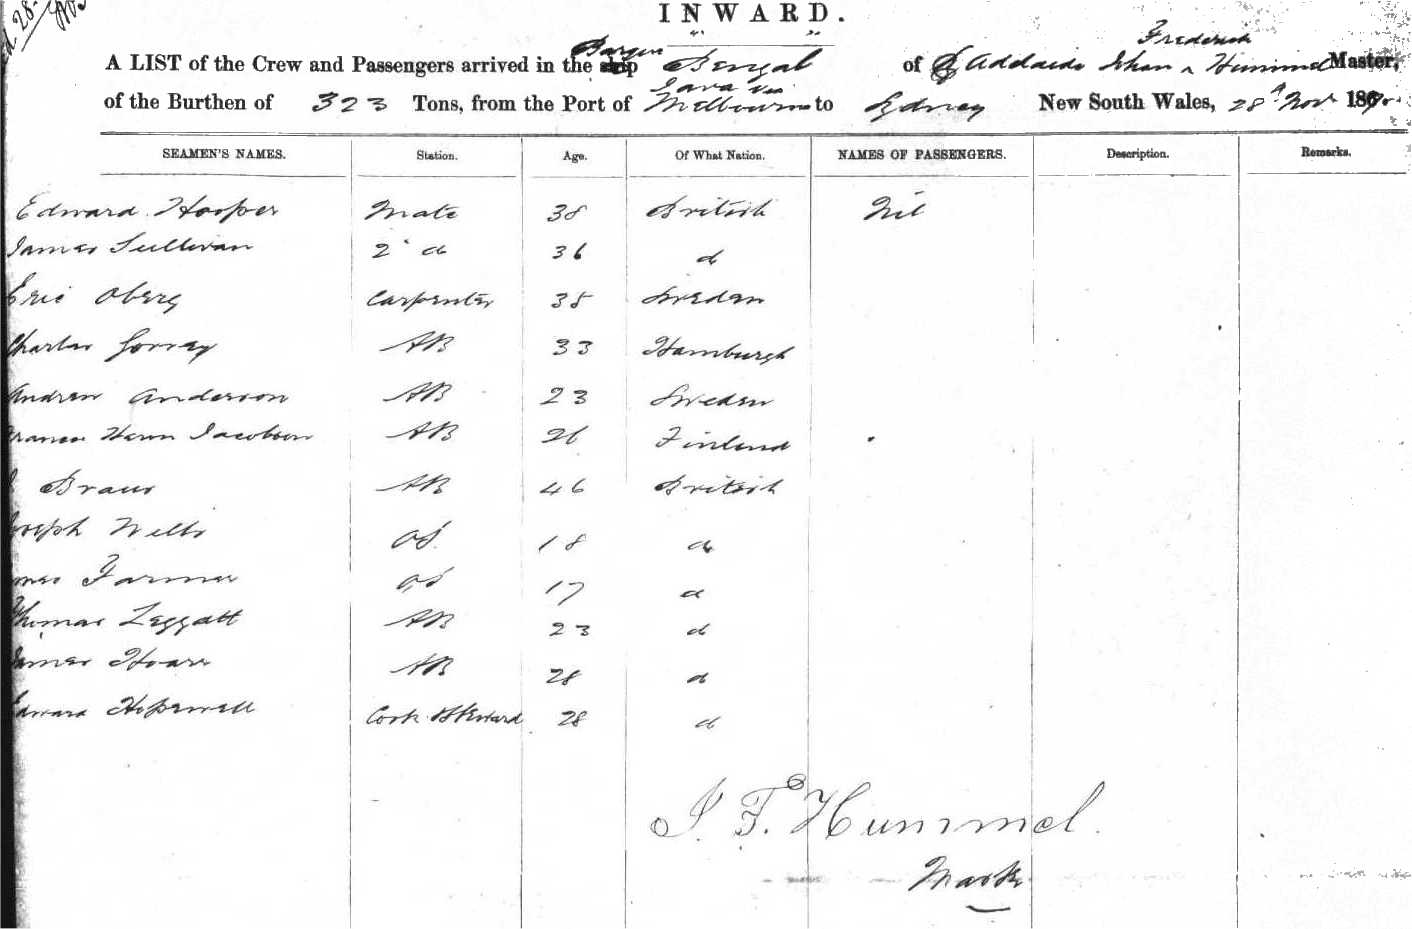 28
INWARD.
Barque Frederick
A LIST of the Crew and Passengers arrived in the ship "Bengal" of Addaide Johan Hummel Master,
Java via
of the Burthen of 323 Tons, from the Port of Melbourne to Sydney New South Wales, 28th Nov 1870.
SEAMEN'S NAMES. Station. Age. Of What Nation. NAMES OF PASSENGERS. Description. Remarks.
Edward Hooper Mate 38 British Nil
James Sullivan 2d 36 d
Eric Oberg Carpenter 38 Sweden
Charles 33 AB Hamburgh
Andrew Anderson AB 23 Sweden
Jacobson AB 26 Finland
AB 46 British
Joseph Wells OS 18 d
James Farmer OS 17 d
Thomas Leggatt AB 23 d
James Hoare AB 28 d
Edward Hopewell Cook & Steward 28 d
J. F. Hummel
Master